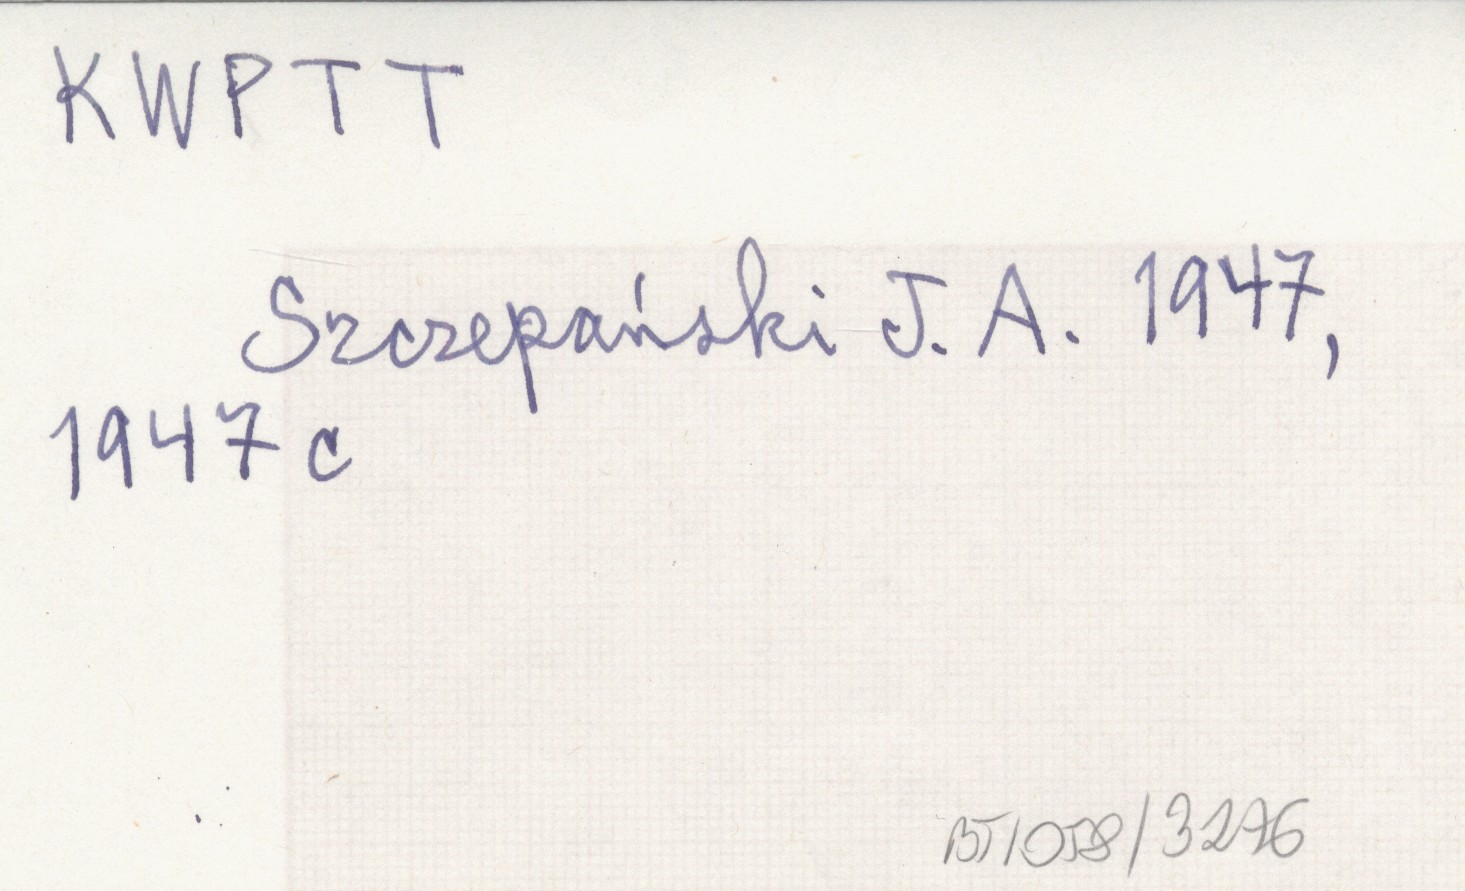 KWPTT
Szczepański J. A. 1947,
1947 c
BT/058/3276